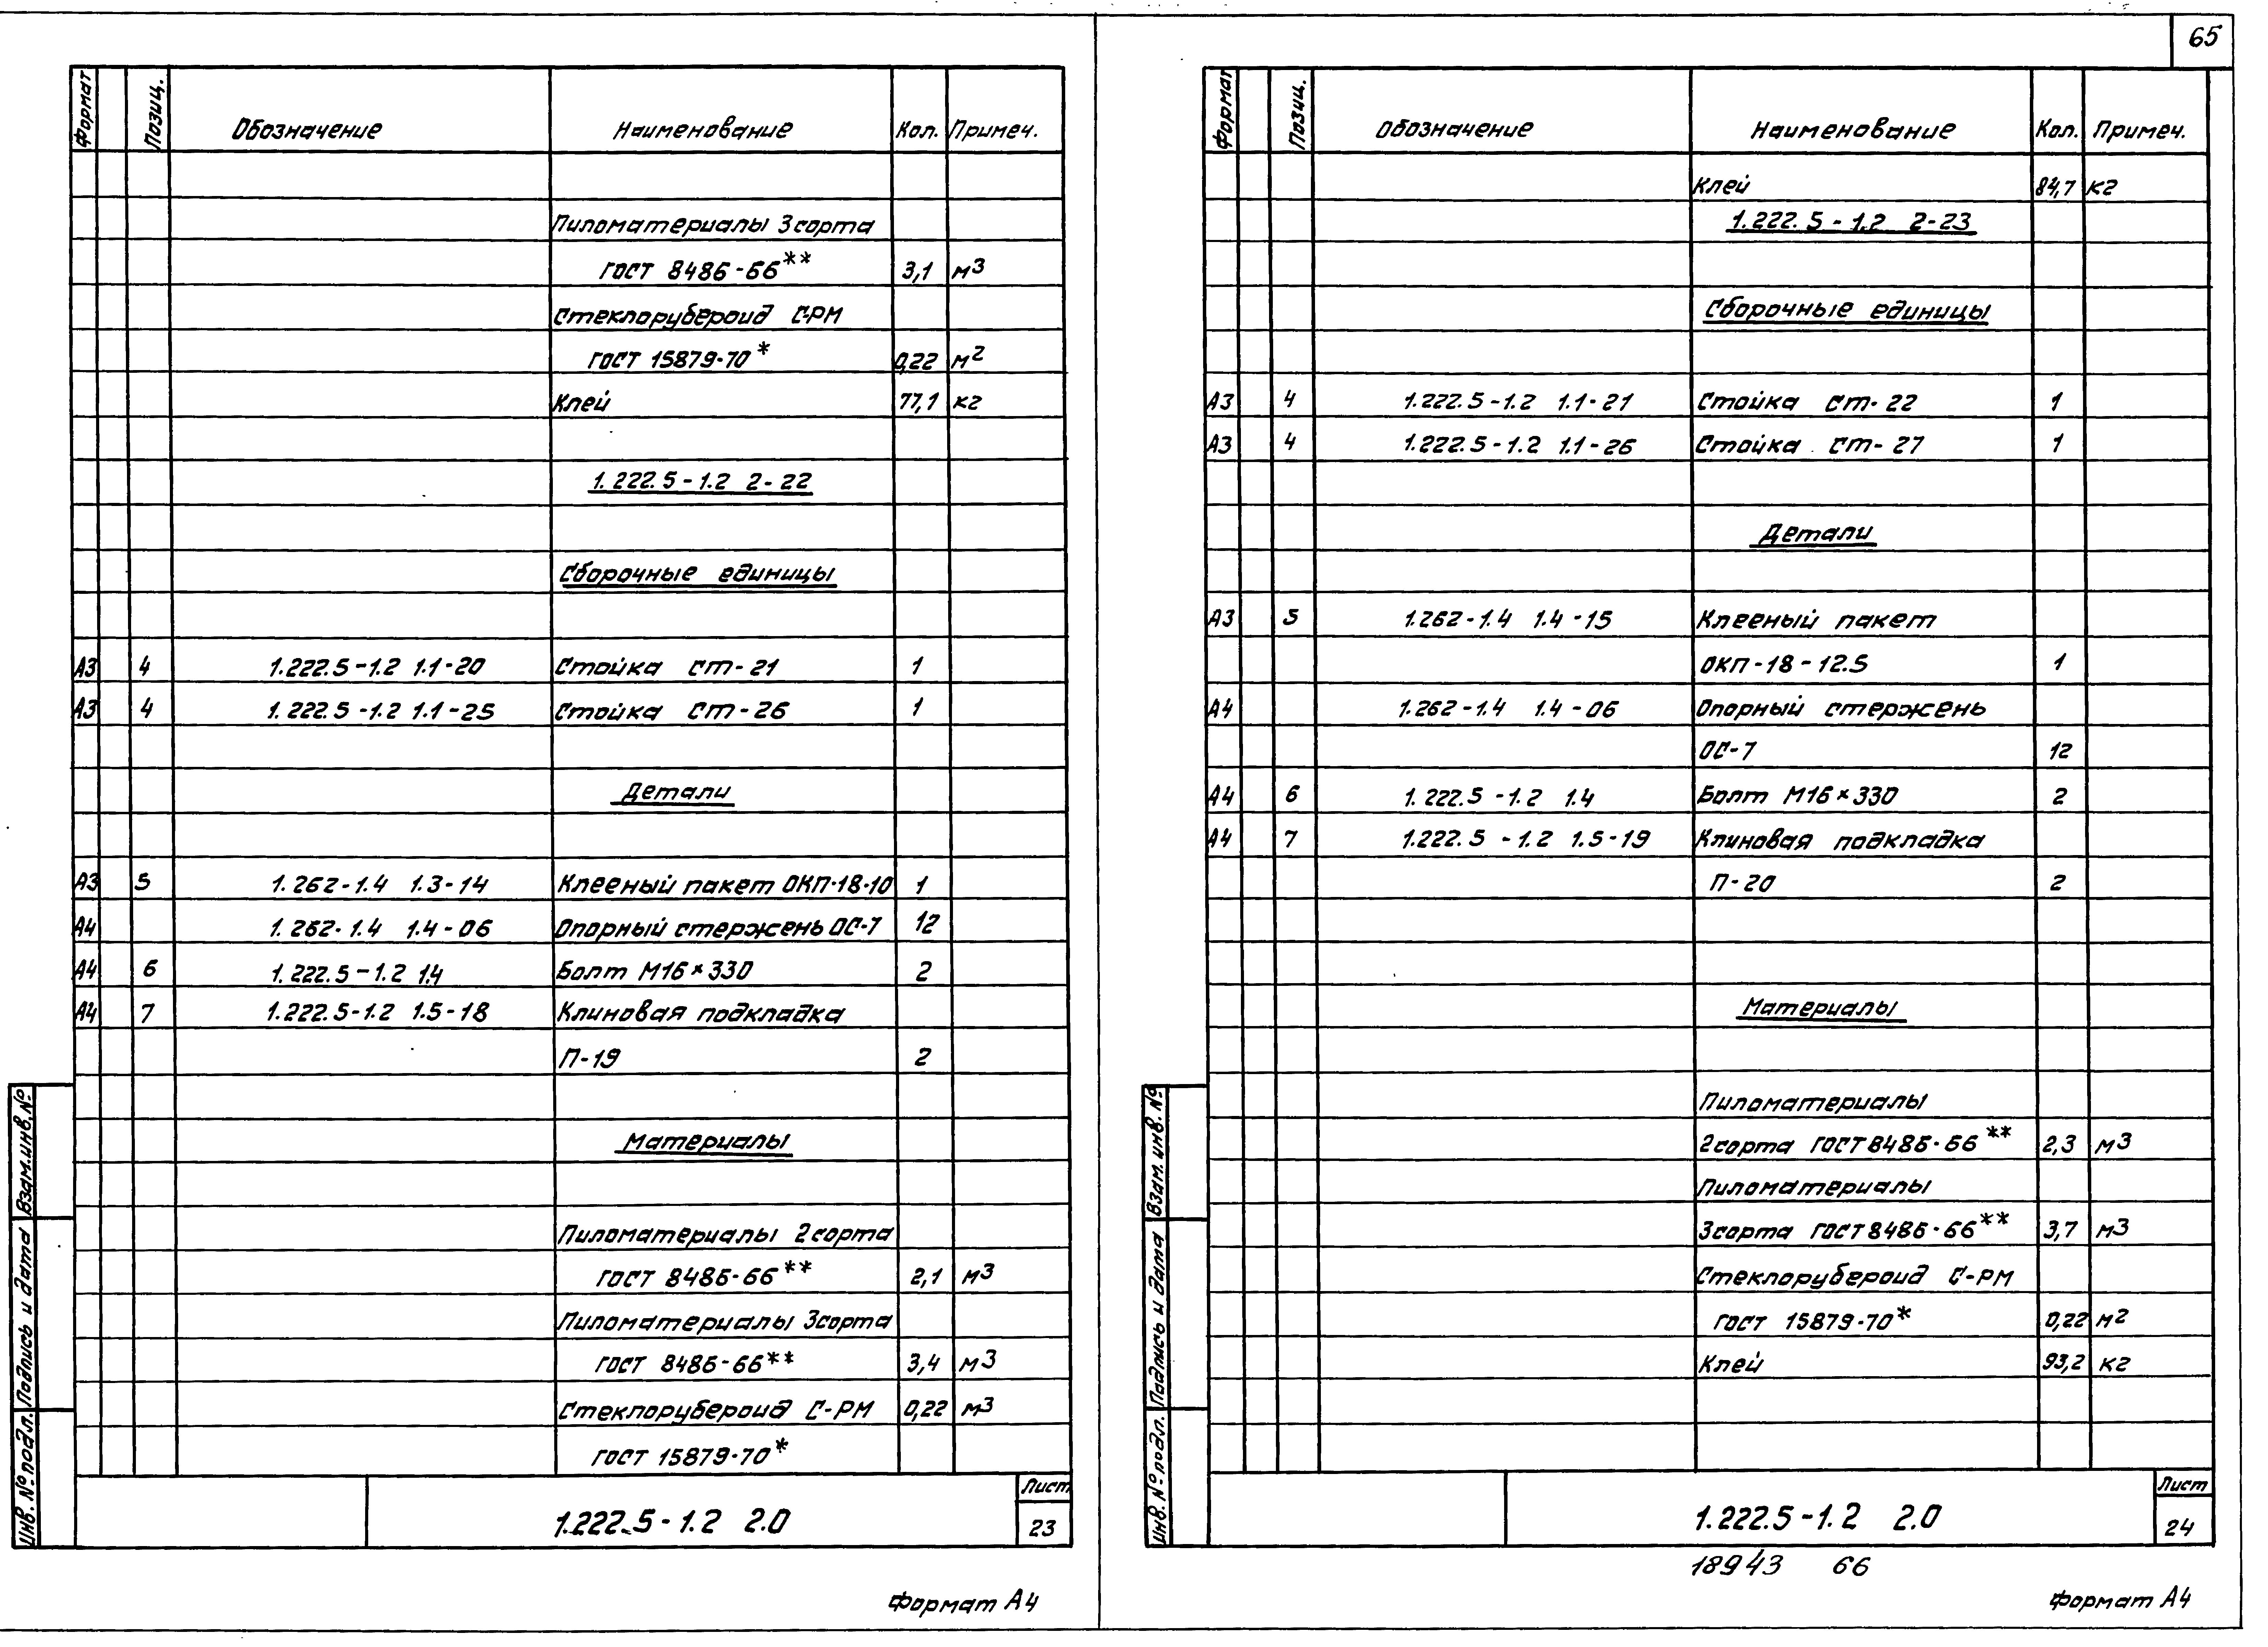 65
Формат Позиц. Обозначение Наименование Кол. Примеч.
Пиломатериалы 3 сорта
ГОСТ 8486-66** 3,1 м3
Стеклорубероид С-РМ
ГОСТ 15879-70* 0,22 м2
Клей 77,1 кг
1.222.5-1.2 2-22
Сборочные единицы
А3 4 1.222.5-1.2 1.1-20 Стойка СТ-21 1
А3 4 1.222.5-1.2 1.1-25 Стойка СТ-26 1
Детали
А3 5 1.262-1.4 1.3-14 Клееный пакет ОКП-18-10 1
А4 1.262-1.4 1.4-06 Опорный стержень ОС-7 12
А4 6 1.222.5-1.2 1.4 Болт М16×330 2
А4 7 1.222.5-1.2 1.5-18 Клиновая подкладка
П-19 2
Материалы
Пиломатериалы 2 сорта
ГОСТ 8486-66** 2,1 м3
Пиломатериалы 3 сорта
ГОСТ 8486-66** 3,4 м3
Стеклорубероид С-РМ 0,22 м3
ГОСТ 15879-70*
Инв. № подл. Подпись и дата Взам. инв. №
1.222.5-1.2 2.0
Лист
23
Формат А4
Формат Позиц. Обозначение Наименование Кол. Примеч.
Клей 84,7 кг
1.222.5-1.2 2-23
Сборочные единицы
А3 4 1.222.5-1.2 1.1-21 Стойка СТ-22 1
А3 4 1.222.5-1.2 1.1-26 Стойка СТ-27 1
Детали
А3 5 1.262-1.4 1.4-15 Клееный пакет
ОКП-18-12.5 1
А4 1.262-1.4 1.4-06 Опорный стержень
ОС-7 12
А4 6 1.222.5-1.2 1.4 Болт М16×330 2
А4 7 1.222.5-1.2 1.5-19 Клиновая подкладка
П-20 2
Материалы
Пиломатериалы
2 сорта ГОСТ 8486-66** 2,3 м3
Пиломатериалы
3 сорта ГОСТ 8486-66** 3,7 м3
Стеклорубероид С-РМ
ГОСТ 15879-70* 0,22 м2
Клей 93,2 кг
Инв. № подл. Подпись и дата Взам. инв. №
1.222.5-1.2 2.0
Лист
24
18943 66
Формат А4